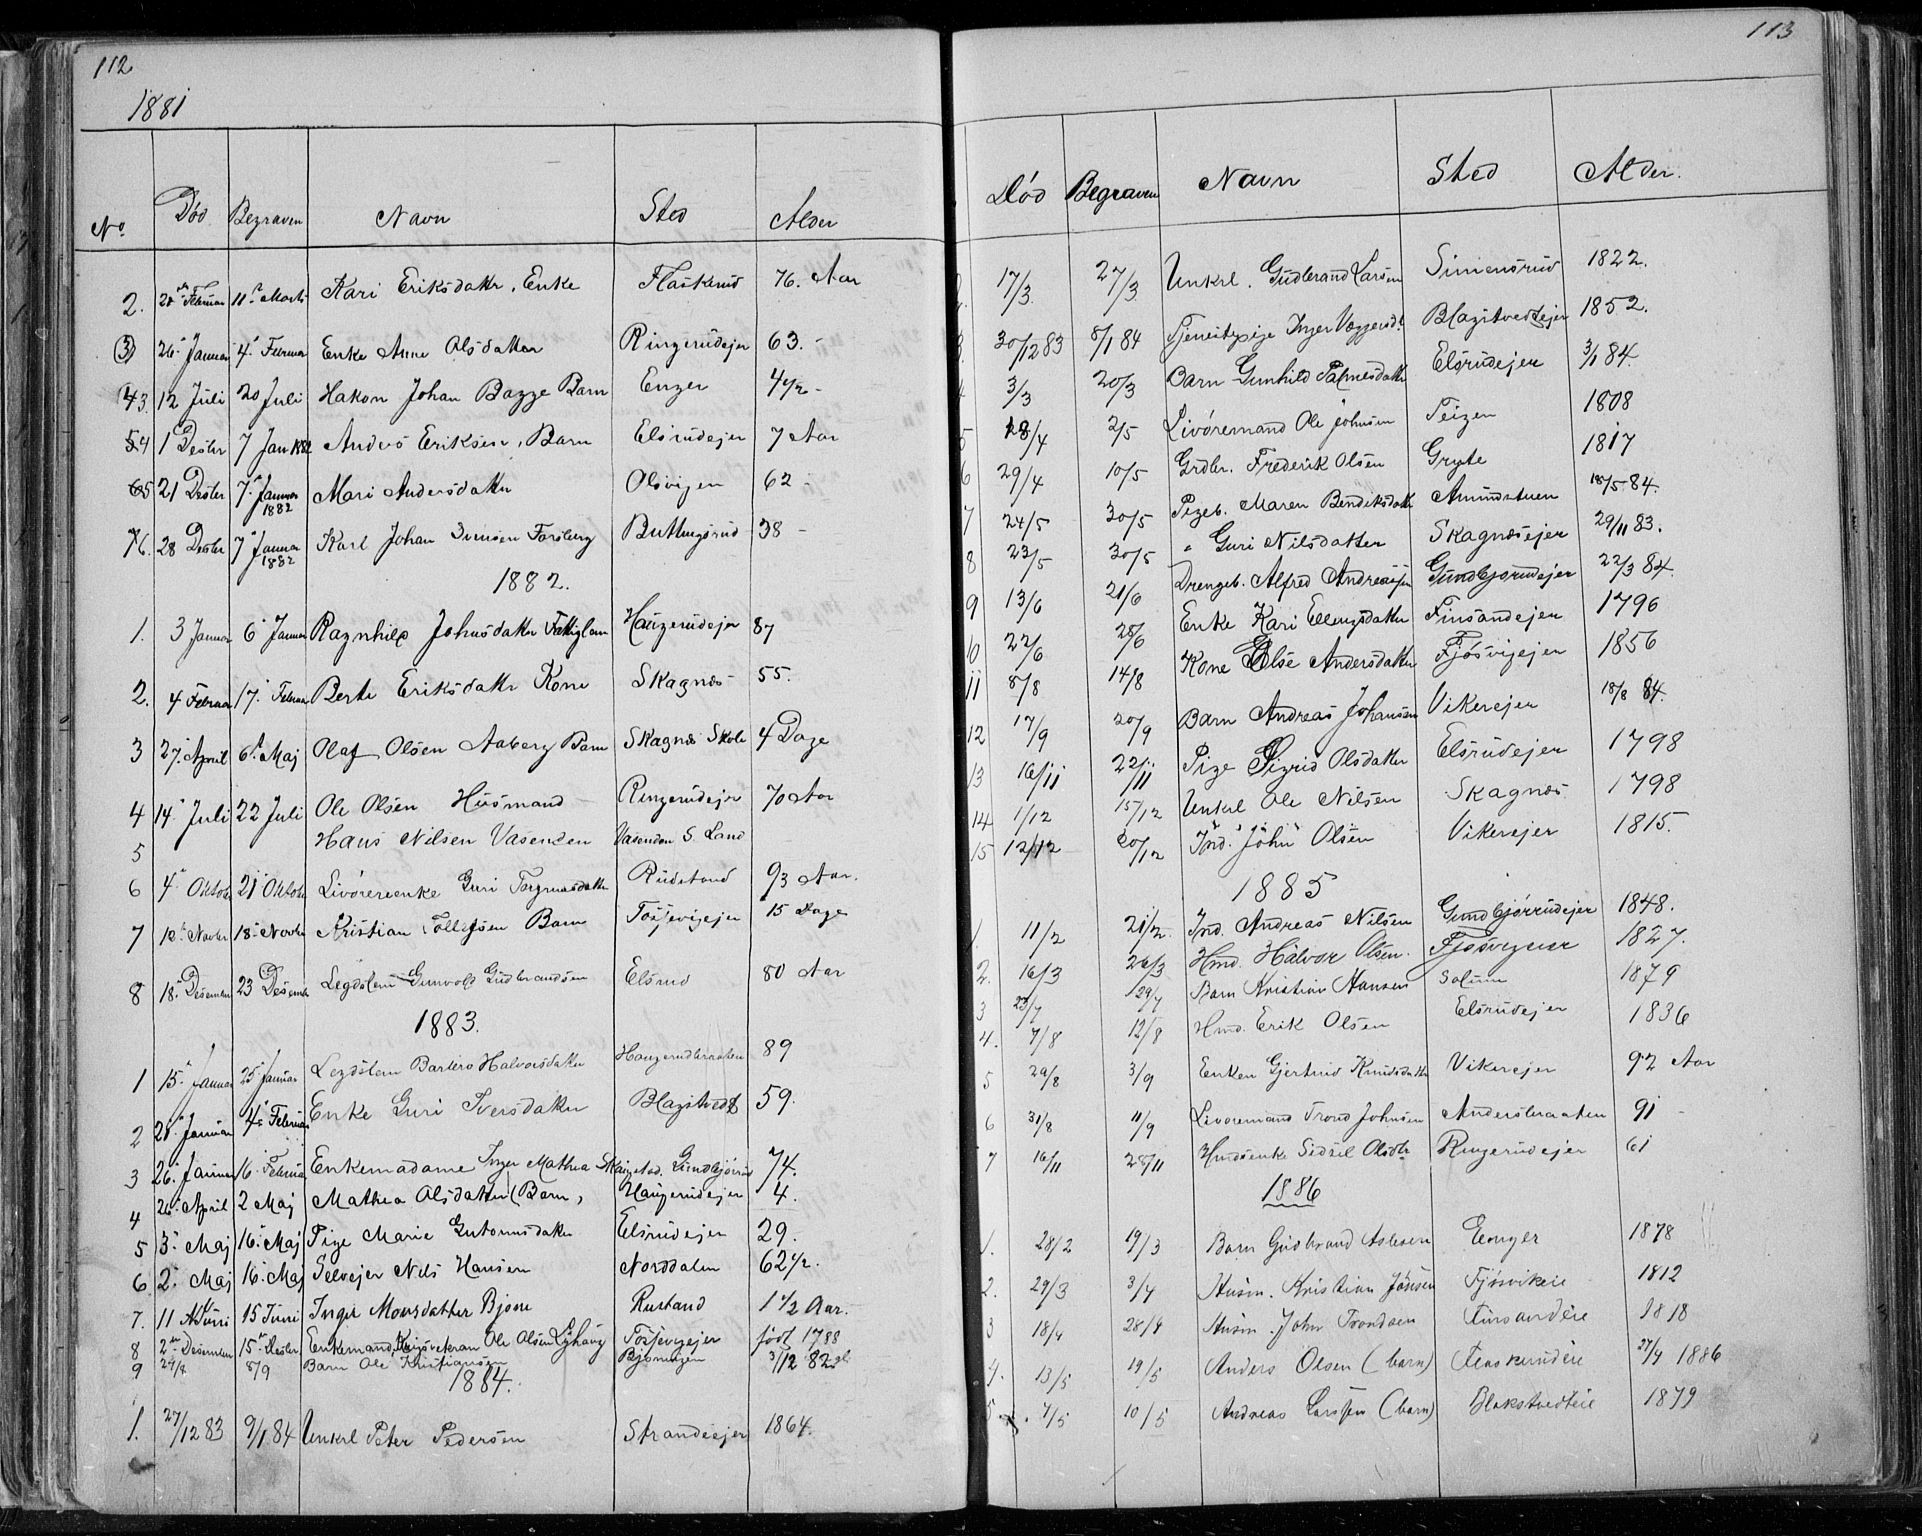 112
1881
No Død Begraven Navn Sted Alder
2. 11te Marts Kari Eriksdatter, Enke Flaskerud 76. Aar
3) 26. Januar 4. Februar Enke Anne Olsdatter Ringerudejer 63. -
3. 12 Juli 20 Juli Hakon Johan Bagge Barn Enger 4 1/2 -
4 1 Desbr 7 Jan 1882 Anders Eriksen, Barn Elsrudejer 7 Aar
5 21 Desbr 7. Januar 1882 Mari Andersdatter Olsvigen 62 -
6. 28 Desbr 7 Januar 1882 Karl Johan Forsberg 38 -
1882.
1. 3 Januar 6 Januar Ragnhild Johnsdatter Fattiglem Haugerudejer 87
2. 4 Februar 17. Februar Berte Eriksdatter Kone Skagnæs 55.
3 27. April 6. Maj Olaf Olsen Aaberg Barn Skagnæs Skole 4 Dage
4 14 Juli 22 Juli Ole Olsen Husmand Ringerudejer 70 Aar
5 Hans Nilsen Vasenden Vasenden S. Land
6 4. Oktober 21 Oktober Livøreenke Guri 93 Aar.
7 18. Novbr Kristian Tollefsen Barn Tossevigejer 15 Dage
8 18. Desember 23 Desember Legdslem Gunvold Gudbrandsen Elsrud 80 Aar
1883.
1 15. Januar 25. Januar Legdslem Barbro Halvorsdatter Haugerudbraaten 89
2 4. Februar Enke Guri Iversdatter Blagstvedt 59.
3 26. Januar 16. Februar Enkemadame Inger Mathea Skaugstad. Gundbjørrud 74.
4 26. April 2 Maj Mathea Olsdatter (Barn, Haugerudejer 4.
5 3. Maj 16. Maj Pige Marie Gutormsdatter Elsrudejer 29.
6. 2. Maj 16. Maj Selvejer Nils Hansen Norddalen 62 1/2.
7. 11 Juni 15 Juni Inger Monsdatter Bjone Rustand 1 1/2 Aar.
8 2den Desember 15. Desbr Enkemand, Krigsveteran Ole Olsen Lyhaug Tossevigejer født 1788
9 24/8 8/9 Barn Ole Kristiansen 3/12 82
1884.
1. 27/12 83 9/1 84 Unkrl Peter Pedersen Strandeejer 1864.
113
Død Begraven Navn Sted Alder.
17/3 27/3 Unkrl. Gudbrand Larsen Simensrud 1822.
30/12 83 8/1 84 Tjenestepige Inger Blagstvedtejer 1852.
4 3/3 20/3 Barn Gunhild Elsrudejer 3/1 84.
5 28/4 2/5 Livøremand Ole Johnsen Teigen 1808
6 29/4 10/5 Grdbr. Frederik Olsen Gryte 1817
7 24/5 30/5 Pigeb. Maren Bendiksdatter Amundstuen 18/5 84.
8 23/5 30/5 " Guri Nilsdatter Skagnæsejer 29/11 83.
9 13/6 21/6 Drengeb. Alfred Andreassen Gundbjørrudejer 22/3 84.
10 22/6 28/6 Enke Kari Ellingsdatter Finsandejer 1796
11 8/8 14/8 Kone Else Andersdatter Fjøsvigejer 1856
12 17/9 20/9 Barn Andreas Johansen Vikerejer 18/8 84.
13 16/11 22/11 Pige Sigrid Olsdatter Elsrudejer 1798
14 1/12 15/12 Unkrl Ole Nilsen Skagnæs 1798
15 12/12 20/12 Ind. John Olsen Vikerejer 1815.
1885
1 11/2 21/2. Ind. Andreas Nilsen Gundbjørrudejer 1848.
2. 16/3 26/3 Hmd. Halvor Olsen. 1827.
3 23/7 29/7 Barn Kristian Hansen Solum 1879
4. 7/8 12/8 Hmd. Erik Olsen Elsrudejer 1836
5 29/8 3/9 Enken Gjertrud Knudsdatter Vikerejer 92 Aar
6 31/8 11/9 Livøremand Trond Johnsen Andersbraaten 91 -
7 16/11 28/11 Hmdsenke Sidsil Olsdtr Ringerudejer 61
1886
1. 28/2 19/3 Barn Gudbrand Aslesen Eenger 1878
2. 29/3 3/4 Husm. Kristian Jonsen Fjøsvikeie 1812
3 18/4 28/4 Husm. John Trondsen Finsandeie 1818
4. 13/5 19/5 Anders Olsen (barn) Flaskerudeie 27/4 1886
5 7/5 10/5 Andreas Larssen (barn) Blakstvedteie 1879